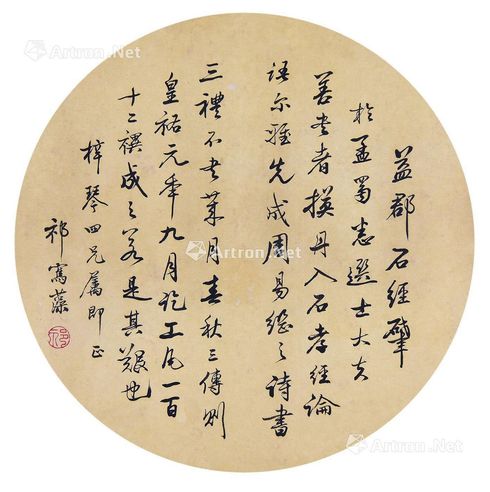 益郡石經肇
於孟蜀悉選士大夫
善書者模丹入石孝經論
語尔雅先成周易繼之詩書
三禮不書歲月春秋三傳則
皇祐元年九月訖工凡一百
十二禩成之若是其艱也
梓琴四兄屬即正
祁寯藻
Artron.Net
Artron.Net
Artron.Net
Artron.Net
Artron.Net